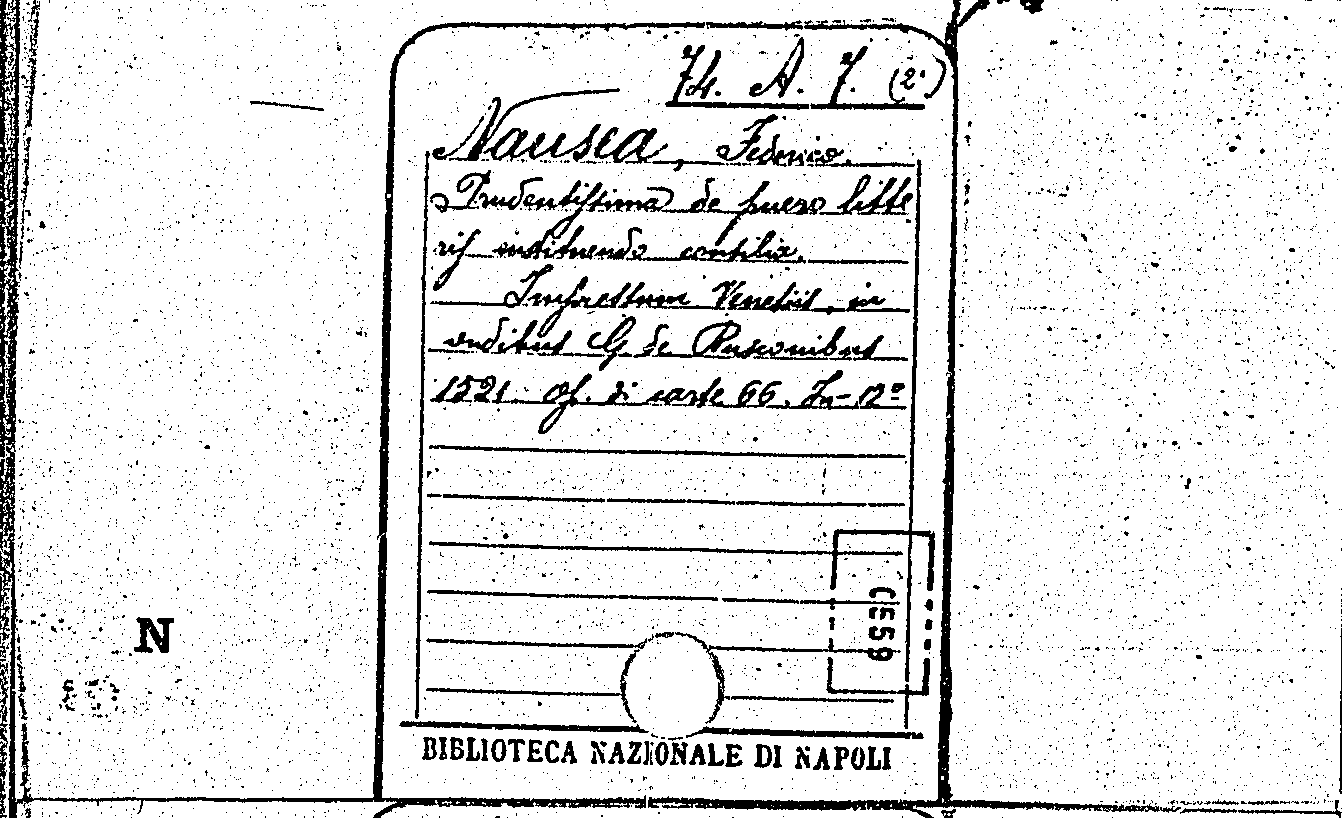 74. A. 7. (2.)
Nausea, Federico.
Prudentissima de puero litte
ris instituendo consilia.
Impressum Venetiis, in
aedibus G. de Rusconibus
1521. Op. di carte 66. In-12º
N
BIBLIOTECA NAZIONALE DI NAPOLI